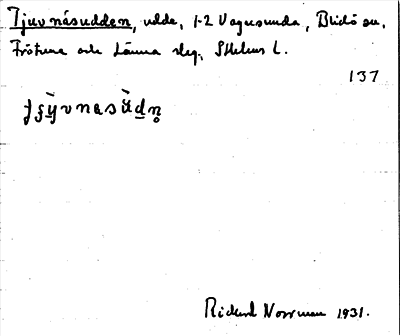 Tjuvnäsudden, udde, 1-2 Vagnsunda, Blidö sn,
Frötuna och Länna slg, Sthlms l.
137
Richard Norrman 1931.